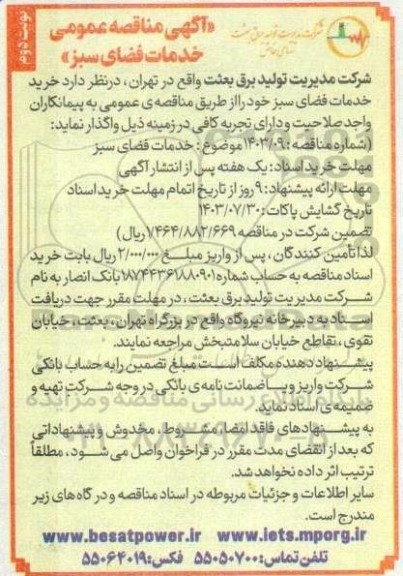 نوبت دوم
«آگهی مناقصه عمومی
خدمات فضای سبز»
شرکت مدیریت تولید برق بعثت واقع در تهران، درنظر دارد خرید
خدمات فضای سبز خود را از طریق مناقصه ی عمومی به پیمانکاران
واجد صلاحیت و دارای تجربه کافی در زمینه ذیل واگذار نماید:
(شماره مناقصه: ۱۴۰۳/۰۹ موضوع: خدمات فضای سبز
مهلت خرید اسناد: یک هفته پس از انتشار آگهی
مهلت ارائه پیشنهاد: ۹ روز از تاریخ اتمام مهلت خرید اسناد
تاریخ گشایش پاکات: ۱۴۰۳/۰۷/۳۰
تضمین شرکت در مناقصه ۷/۴۶۴/۸۸۲/۶۶۹ ریال)
لذا تامین کنندگان، پس از واریز مبلغ ۲/۰۰۰/۰۰۰ ریال بابت خرید
اسناد مناقصه به حساب شماره ۱۸۷۴۴۳۶۱۸۸۰۹۰۱ بانک انصار به نام
شرکت مدیریت تولید برق بعثت، در مهلت مقرر جهت دریافت
اسناد به دبیرخانه نیروگاه واقع در بزرگراه تهران، بعثت، خیابان
تقوی، تقاطع خیابان سلامتبخش مراجعه نمایند.
پیشنهاد دهنده مکلف است مبلغ تضمین را به حساب بانکی
شرکت واریز و یا ضمانت نامه ی بانکی در وجه شرکت تهیه و
ضمیمه ی اسناد نماید.
به پیشنهادهای فاقد امضا، مشروط، مخدوش و پیشنهاداتی
که بعد از انقضای مدت مقرر در فراخوان واصل می شود، مطلقاً
ترتیب اثر داده نخواهد شد.
سایر اطلاعات و جزئیات مربوطه در اسناد مناقصه و درگاه های زیر
مندرج است.
www.besatpower.ir www.iets.mporg.ir
تلفن تماس: ۵۵۰۵۰۷۰۰ فکس: ۵۵۰۶۴۰۱۹